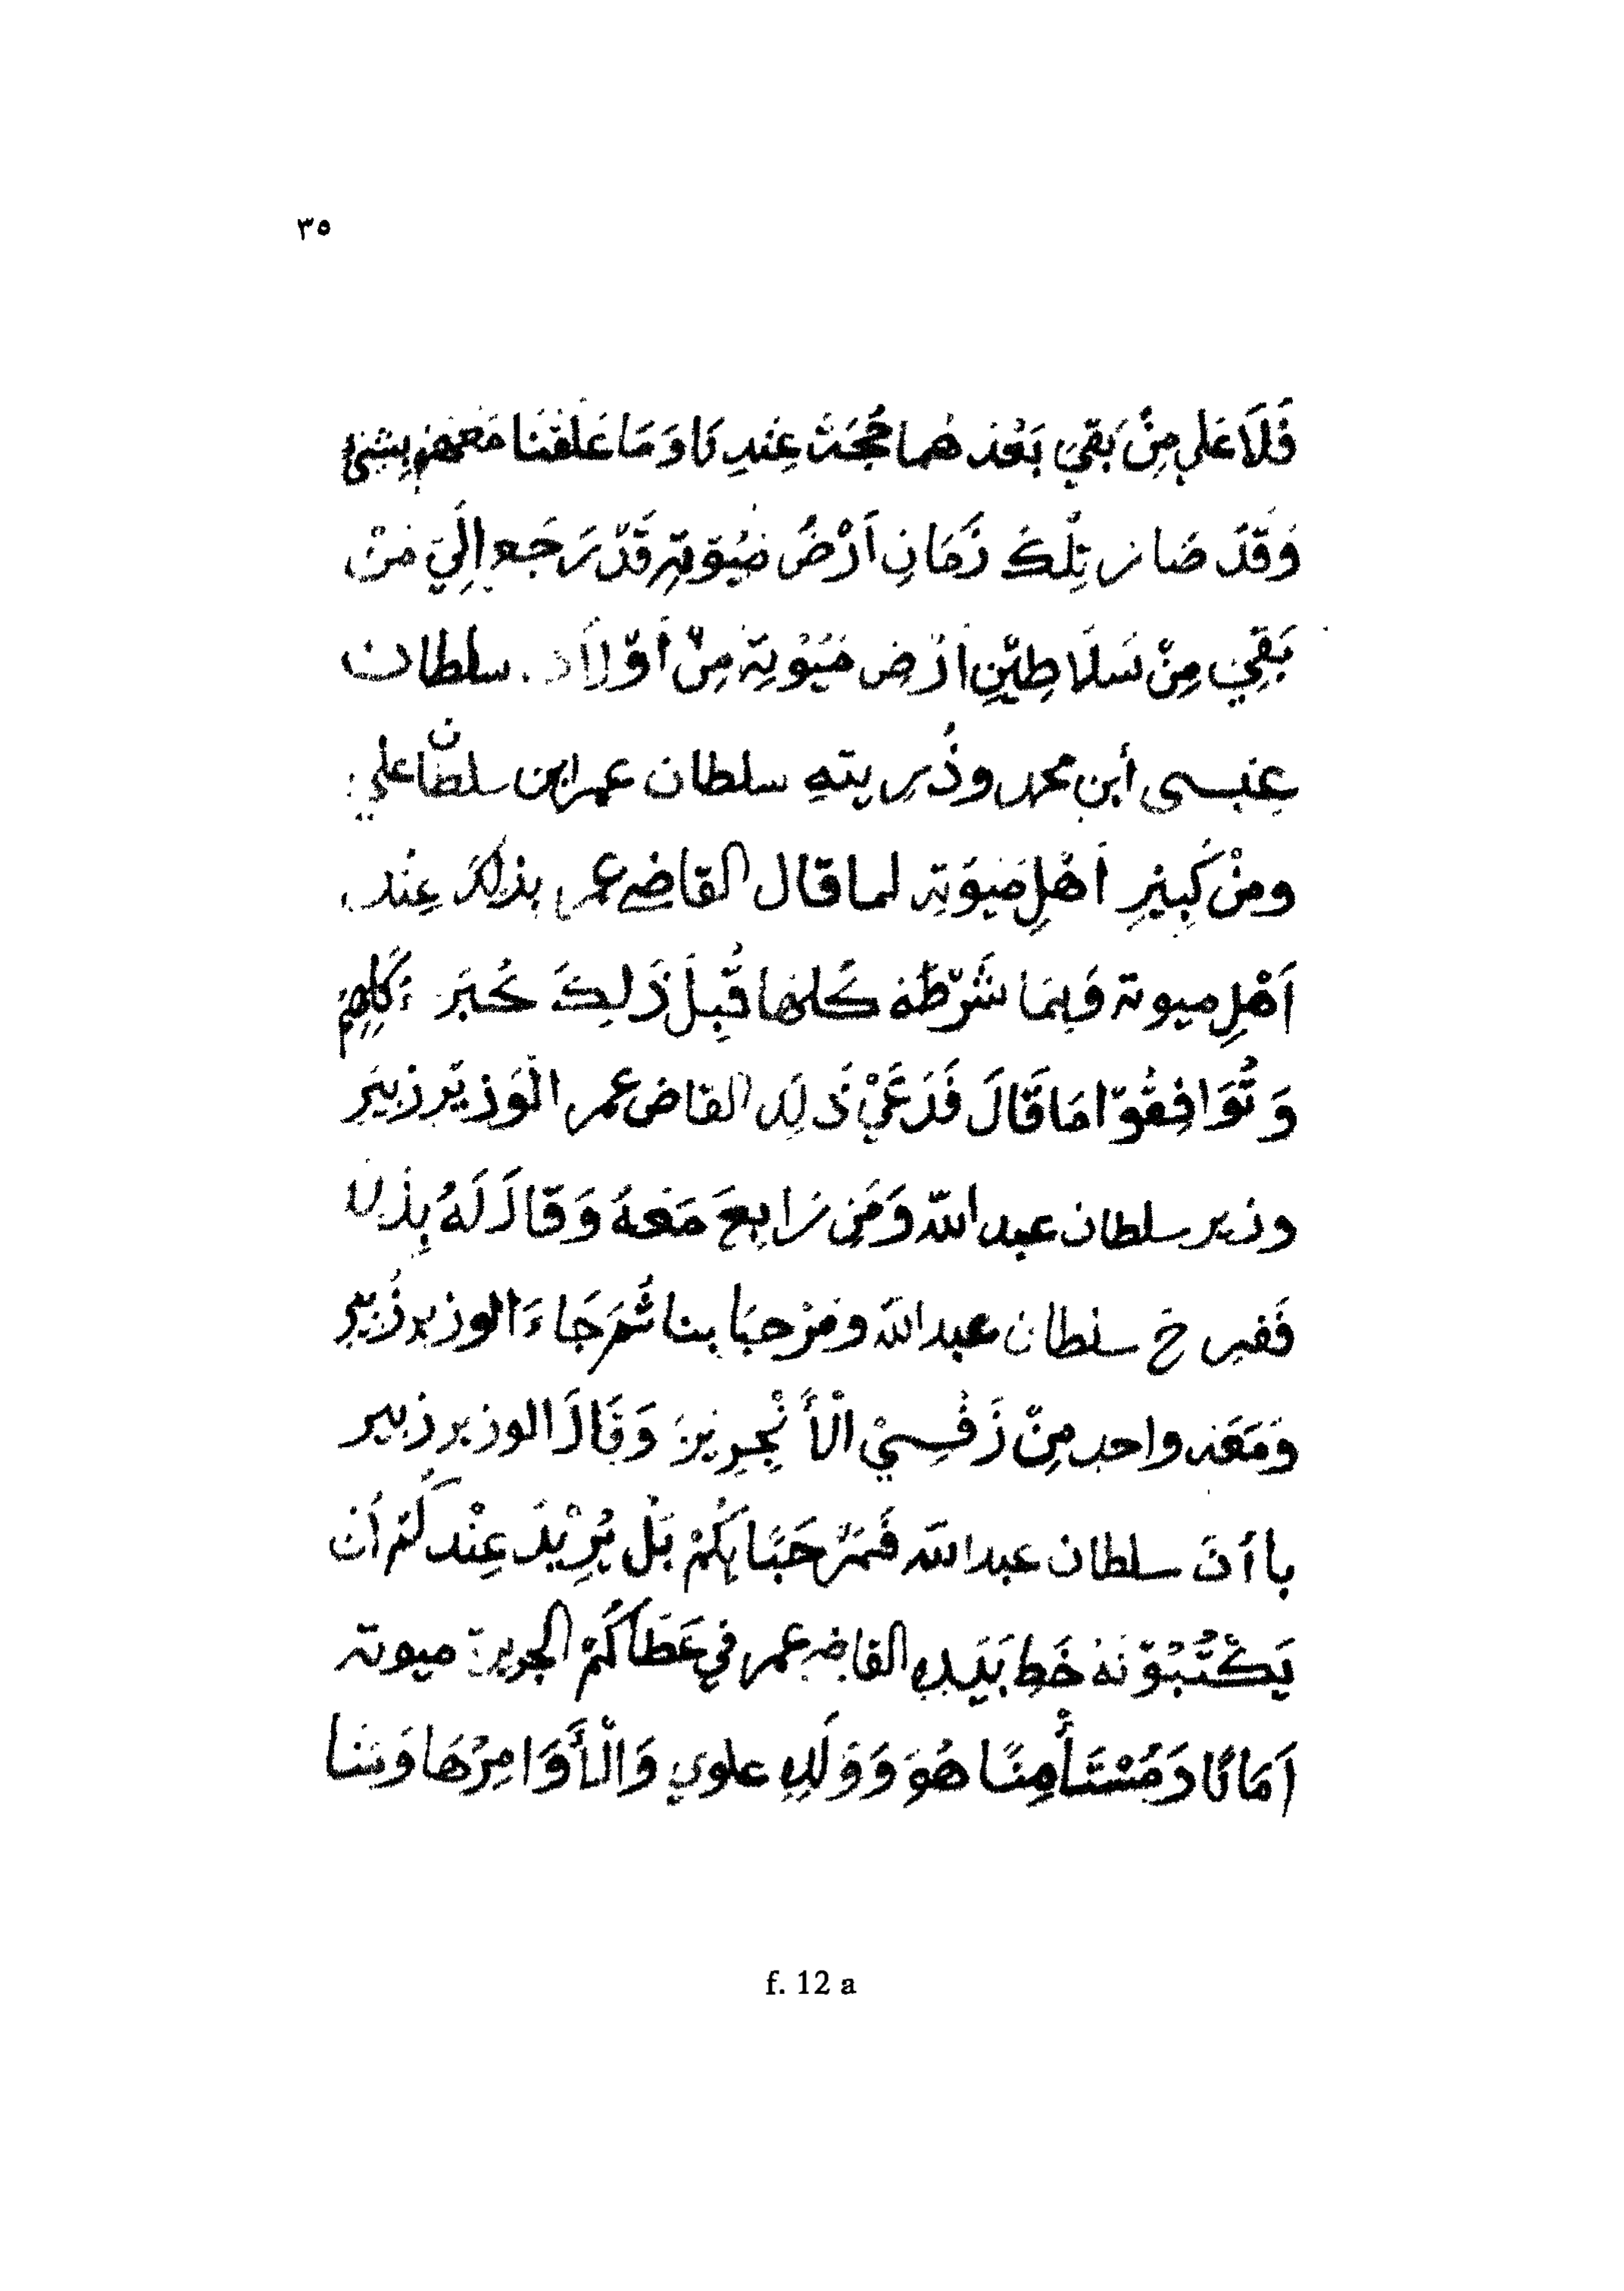 ٣٥
فَلَا عَلي مِنْ بَقِيَ بَعْدَ هُما حُجَتْ عِنْدِ نَا وَمَا عَلَقْنَا مَعَهُمْ بِشَئٍ
وَقَدْ صَارَ تِلْكَ زَمَانِ اَرْضُ مَيُوْتِهِ قَدْ رَجَع اِلَيَ مَنْ
بَقِيَ مِنْ سَلَاطِيْنِ اَرْضِ مَيُوْتِهْ مِنْ أَوْلَادِ سلطان
عِنبسى أبن محمد وذُرِيتهِ سلطان عمر ابن سلطان علي
ومِنْ كَبِيْرِ أَهْلِ مَيوَتِهِ لما قال القاضي عمر بذلِكَ عِنْد
اَهْلِ ميوته وَبِمَا شَرْطُهْ كلها قَبِلَ ذَلِكَ كُبَرَءَ كلهم
وَتُوَافِقُوْا مَا قَالَ فَدَعَيْ ذَلِك القاض عمر الْوَزيْر زبَيْر
وزير سلطان عبد الله وَمَنِ رَابِعَ مَعَهُ وَقَالَ لَهُ بِذلك
فَفرح سلطان عبد الله ومَرْحبَا بنا ثُمَ جَاءَ الوزير زُبير
وَمَعَه واحد مِنْ نَفْسِيْ الْأَنْجِرِيْز وَقَالَ الوزير زبير
بِا أنَ سلطان عبد الله فَمَرْحَبًا بِكُمْ بَلْ يُرِيْدُ عِنْدكُمْ أن
يَكْتُبُوْنَهْ خَطِ بَيَدِهِ القاضي عمر في عَطَاكُمْ الجريزة ميوته
اَمَانًا دَمُسْتَأْمِنًا هُوَ وَوَلَدِهِ علوي وَالْأَوَامِرُهَا وَسنا
f. 12 a